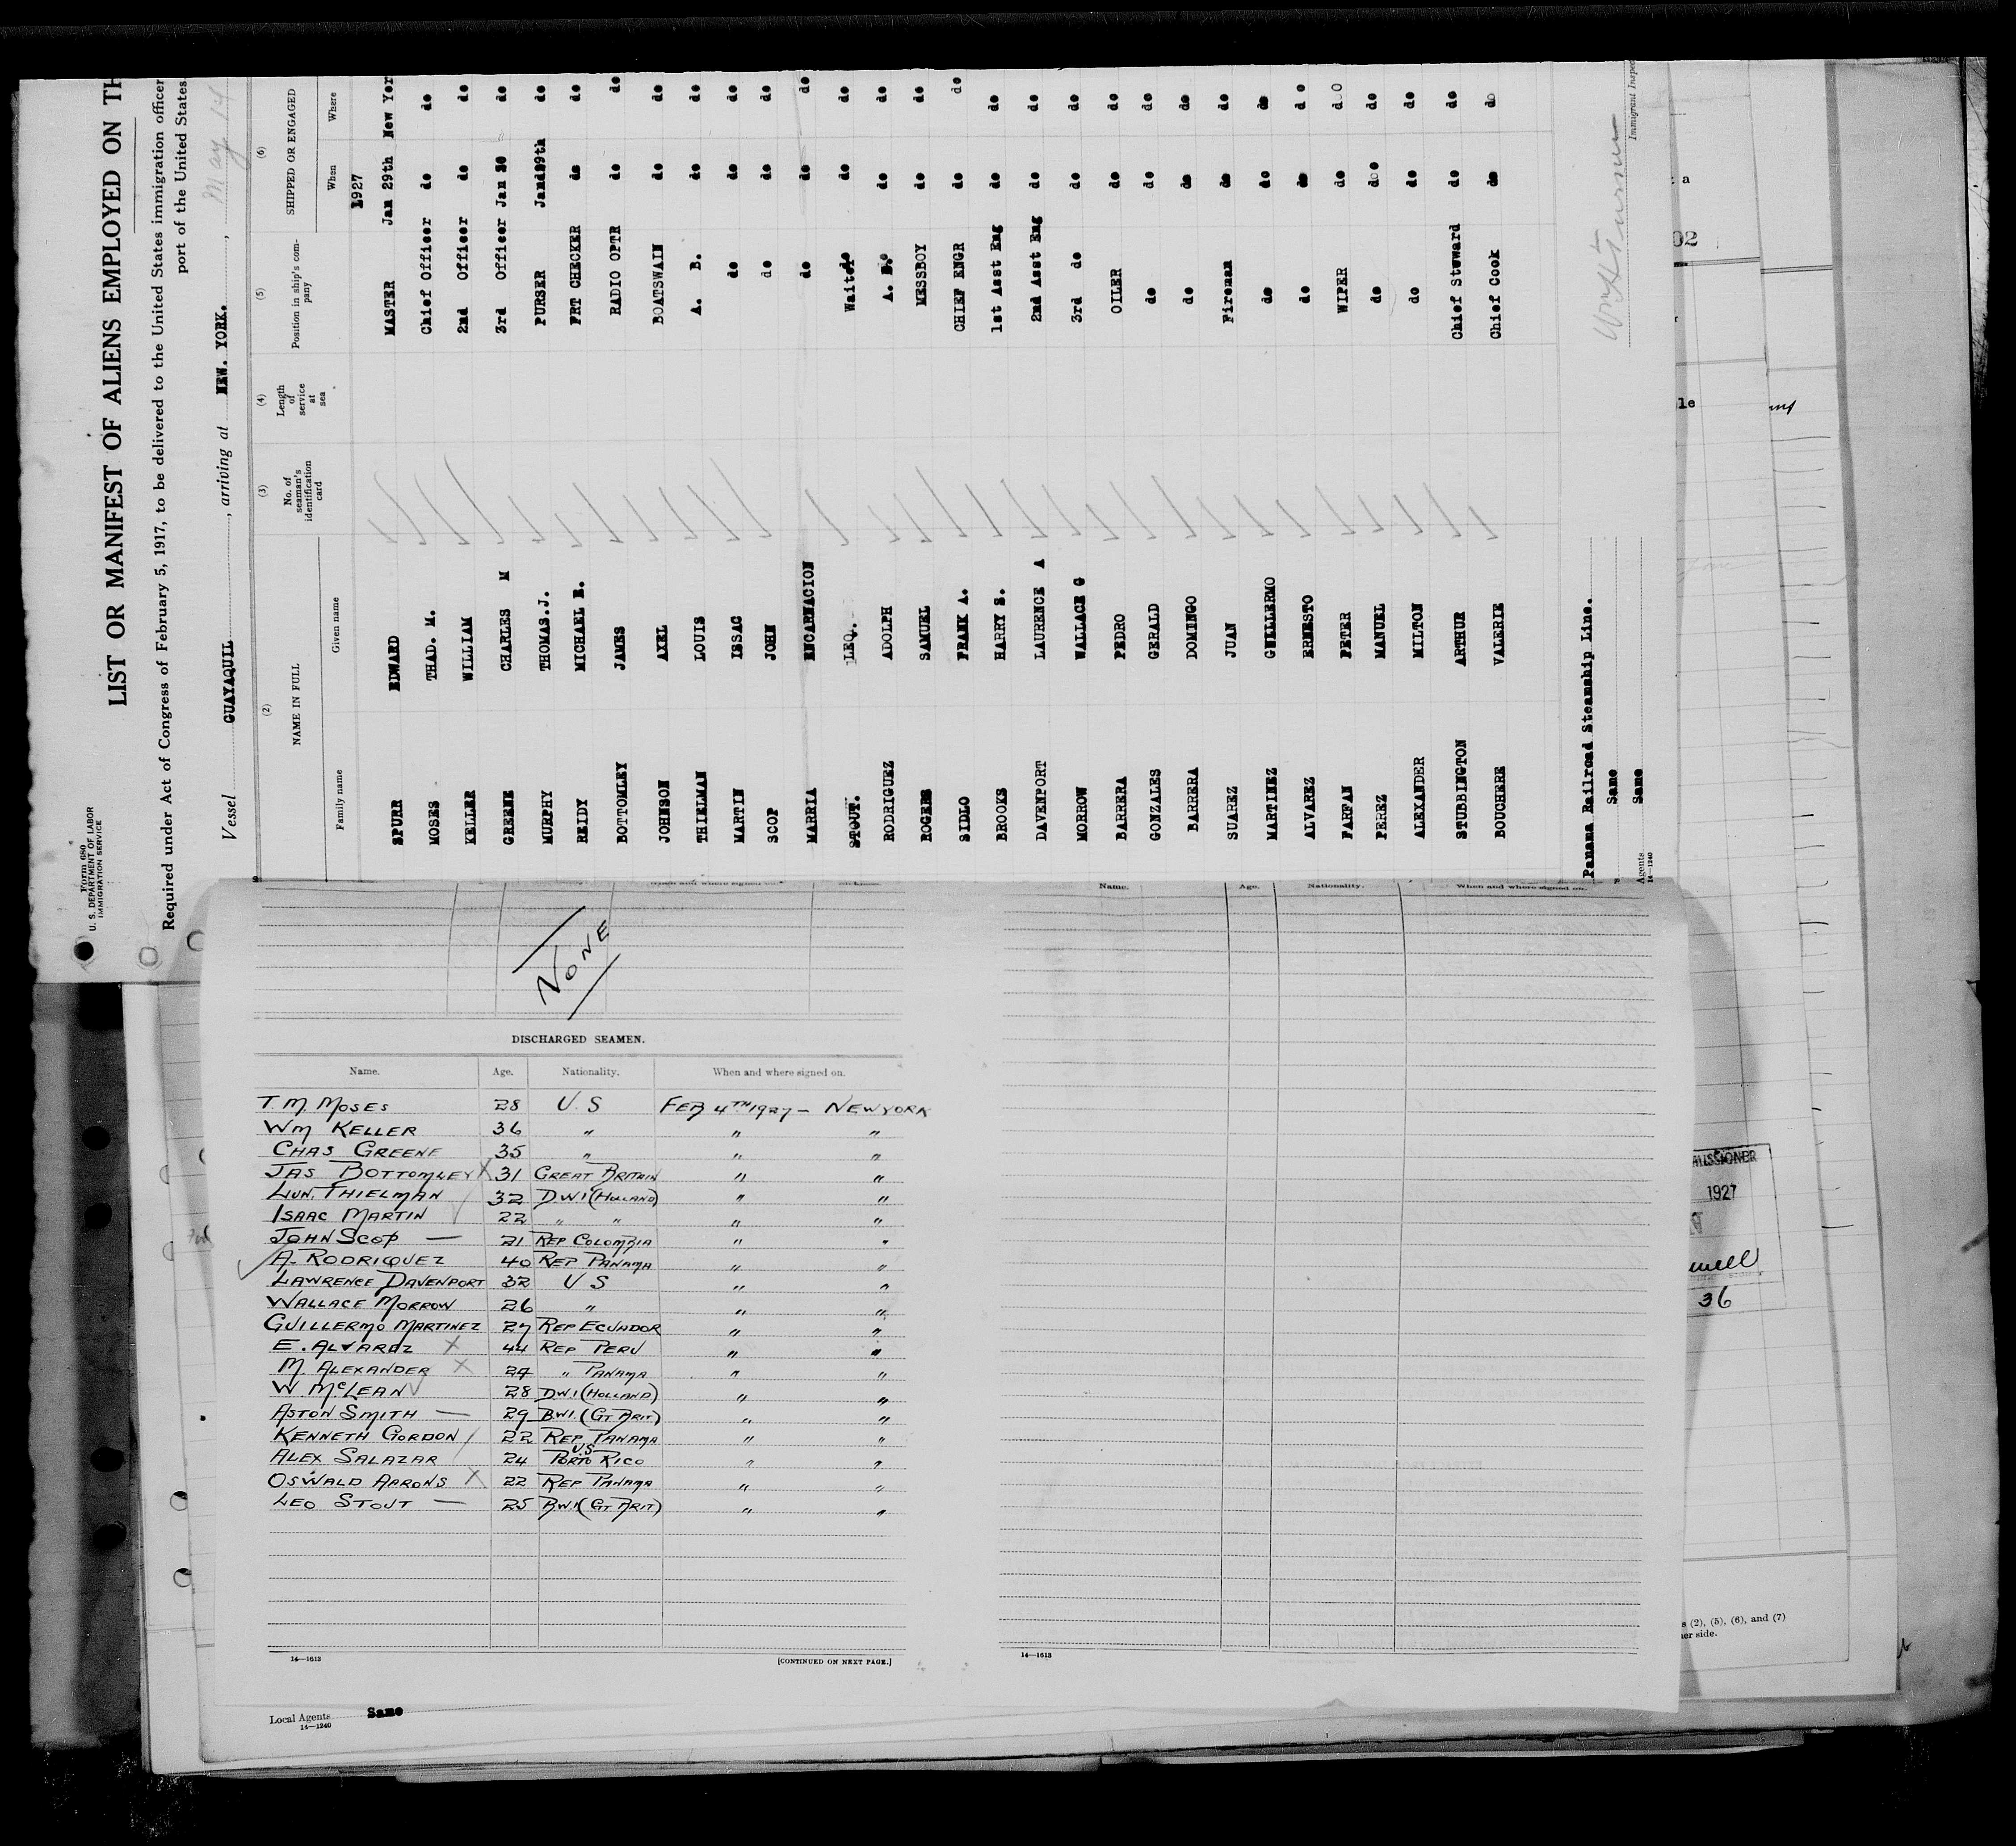 Form 680
U. S. DEPARTMENT OF LABOR
IMMIGRATION SERVICE
LIST OR MANIFEST OF ALIENS EMPLOYED ON TH
Required under Act of Congress of February 5, 1917, to be delivered to the United States immigration officer
port of the United States
Vessel GUAYAQUIL, arriving at NEW. YORK., May 14
(2) (3) (4) (5) (6)
NAME IN FULL No. of seaman's identification card Length of service at sea Position in ship's company SHIPPED OR ENGAGED
Family name Given name When Where
1927
SPURR EDWARD MASTER Jan 29th New Yor
MOSES THAD. M. Chief Officer do do
KELLER WILLIAM 2nd Officer do do
GREENE CHARLES M 3rd Officer Jan 30 do
MURPHY THOMAS.J. PURSER Jan 29th do
REIDY MICHAEL E. FRT CHECKER do do
BOTTOMLEY JAMES RADIO OPTR do do
JOHNSON AXEL BOATSWAIN do do
THIELMAN LOUIS A. B. do do
MARTIN ISSAC do do do
SCOP JOHN do do do
MARRIA ENCARNACION do do do
STOUT. LEO. Waiter do do
RODRIGUEZ ADOLPH A. B. do do
ROGERS SAMUEL MESSBOY do do
SIDLO FRANK A. CHIEF ENGR do do
BROOKS HARRY S. 1st Asst Eng do do
DAVENPORT LAURENCE A 2nd Asst Eng do do
MORROW WALLACE G 3rd do do do
BARRERA PEDRO OILER do do
GONZALES GERALD do do do
BARRERA DOMINGO do do do
SUAREZ JUAN Fireman do do
MARTINEZ GUILLERMO do do do
ALVAREZ ERNESTO do do do
FARFAN PETER WIPER do do
PEREZ MANUEL do do do
ALEXANDER MILTON do do do
STUBBINGTON ARTHUR Chief Steward do do
BOUCHERE VALERIE Chief Cook do do
Panama Railroad Steamship Line.
Same
Agents Same
14—1240
Immigrant Inspec
NONE
Name. Age. Nationality. When and where signed on.
DISCHARGED SEAMEN.
Name. Age. Nationality. When and where signed on.
T. M. MOSES 28 U. S FEB 4TH 1927 — NEW YORK
WM KELLER 36 " " "
CHAS GREENE 35 " " "
JAS BOTTOMLEY X 31 GREAT BRITAIN " "
LUN. THIELMAN 32 D.W.I (HOLLAND) " "
ISAAC MARTIN 22 " " " "
JOHN SCOP — 21 REP COLOMBIA " "
A. RODRIQUEZ 40 REP PANAMA " "
LAWRENCE DAVENPORT 32 U S " "
WALLACE MORROW 26 " " "
GUILLERMO MARTINEZ 27 REP ECUADOR " "
E. ALVAREZ X 44 REP PERU " "
M. ALEXANDER X 24 " PANAMA " "
W. McLEAN 28 D.W.I (HOLLAND) " "
ASTON SMITH — 29 B.W.I. (GT BRIT) " "
KENNETH GORDON 22 REP PANAMA " "
ALEX SALAZAR 24 U.S PORTO RICO " "
OSWALD AARONS X 22 REP PANAMA " "
LEO STOUT — 25 B.W.I (GT BRIT) " "
14—1613 [CONTINUED ON NEXT PAGE.] 14—1613
Local Agents Same
14—1240
a
02
le
MISSIONER
1927
36
s (2), (5), (6), and (7)
er side.